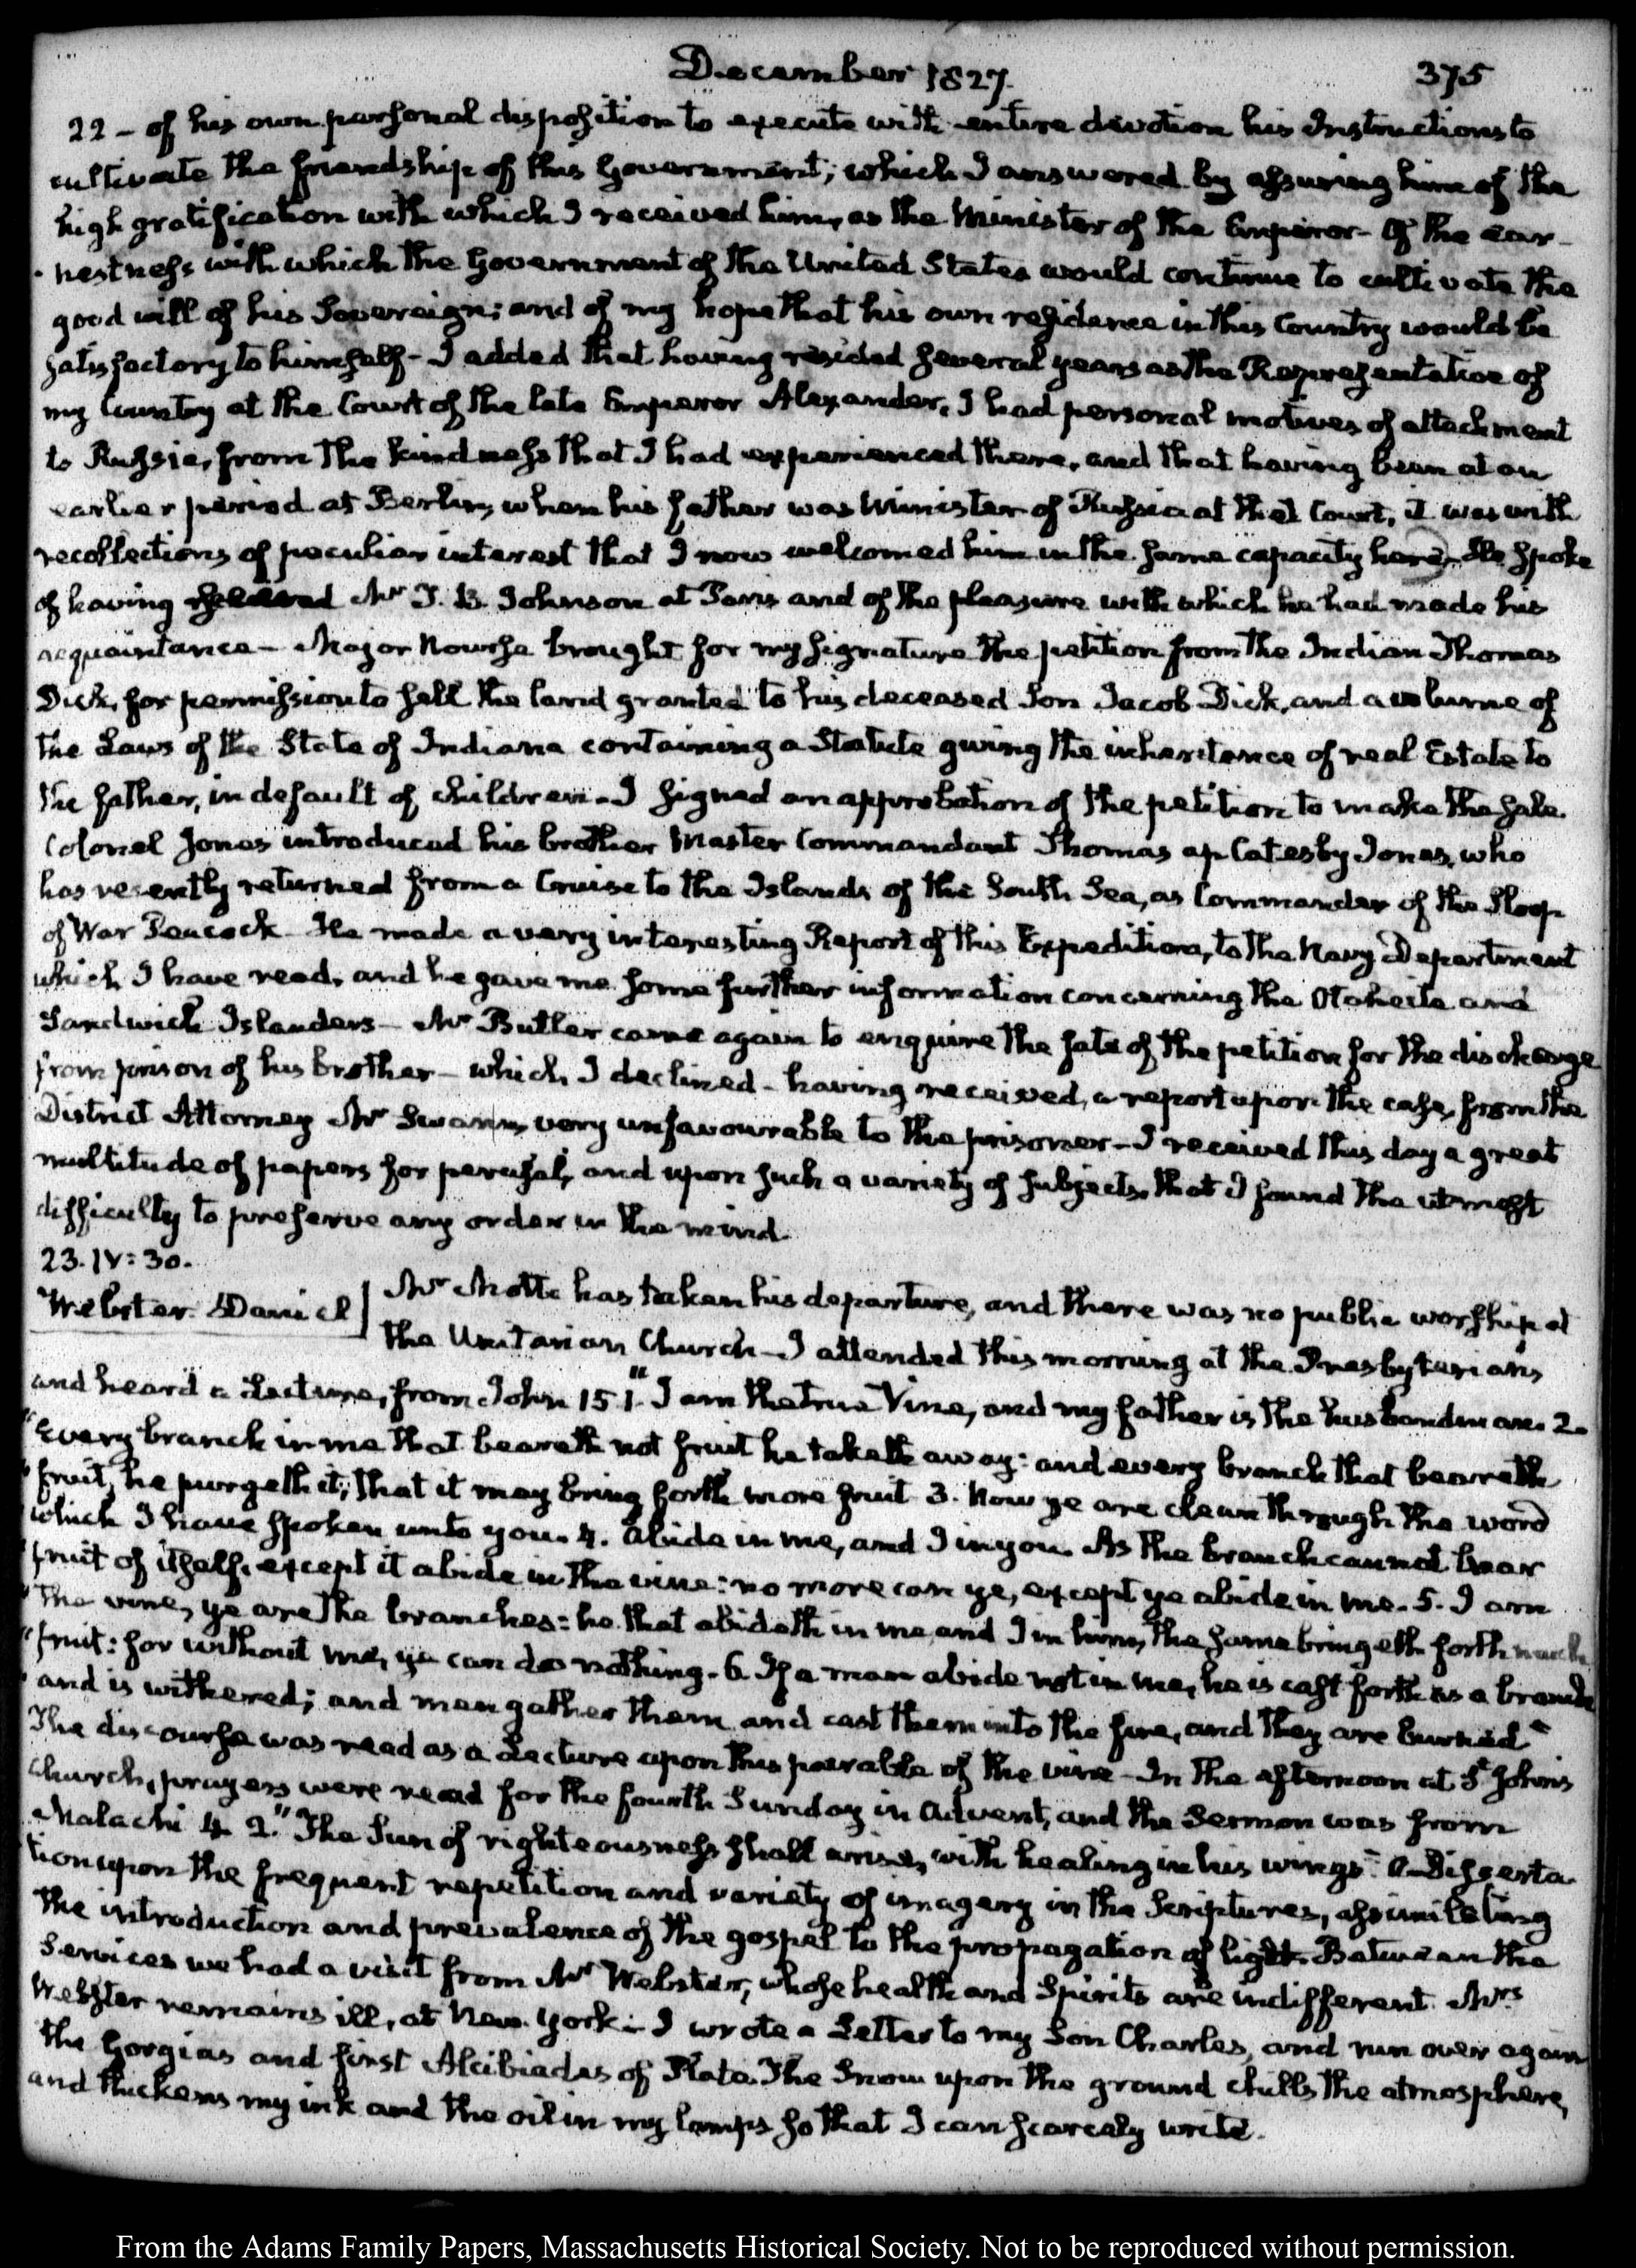 December 1827.
375
22 - of his own personal disposition to execute with entire devotion his Instructions to
cultivate the friendship of this Government; which I answered by assuring him of the
high gratification with which I received him, as the Minister of the Emperor - Of the ear-
nestness with which the Government of the United States would continue to cultivate the
good will of his Sovereign; and of my hope that his own residence in this Country would be
satisfactory to himself - I added that having resided several years as the Representative of
my Country at the Court of the late Emperor Alexander, I had personal motives of attachment
to Russia, from the kindness that I had experienced there, and that having been at an
earlier period at Berlin, when his father was Minister of Russia at that Court, it was with
recollections of peculiar interest that I now welcomed him in the same capacity here - He spoke
of having Mr J. B. Johnson at Paris and of the pleasure with which he had made his
acquaintance - Major Nourse brought for my signature the petition from the Indian Thomas
Dick, for permission to sell the land granted to his deceased Son Jacob Dick, and a volume of
the Laws of the State of Indiana containing a Statute giving the inheritance of real Estate to
the father, in default of children - I signed an approbation of the petition to make the sale.
Colonel Jones introduced his brother Master Commandant Thomas ap Catesby Jones, who
has recently returned from a Cruise to the Islands of the South Sea, as Commander of the Sloop
of War Peacock - He made a very interesting Report of this Expedition, to the Navy Department
which I have read, and he gave me some further information concerning the Otaheite and
Sandwich Islanders - Mr Butler came again to enquire the fate of the petition for the discharge
from prison of his brother - which I declined - having received, a report upon the case, from the
District Attorney Mr Swann, very unfavourable to the prisoner - I received this day a great
multitude of papers for perusal, and upon such a variety of subjects, that I found the utmost
difficulty to preserve any order in the mind.
23. IV: 30.
Webster Daniel
Mr Motte has taken his departure, and there was no public worship at
the Unitarian Church - I attended this morning at the Presbyterians
and heard a Lecture, from John 15 1. "I am the true Vine, and my father is the husbandman. 2.
"Every branch in me that beareth not fruit he taketh away: and every branch that beareth
"fruit, he purgeth it, that it may bring forth more fruit 3. Now ye are clean through the word
which I have spoken unto you. 4. Abide in me, and I in you. As the branch cannot bear
"fruit of itself, except it abide in the vine: no more can ye, except ye abide in me. 5. I am
"the vine, ye are the branches: he that abideth in me, and I in him, the same bringeth forth much
"fruit: for without me, ye can do nothing. 6 If a man abide not in me, he is cast forth as a branch
"and is withered; and men gather them and cast them into the fire, and they are burned"
The discourse was read as a Lecture upon this parable of the vine - In the afternoon at St John's
Church, prayers were read for the fourth Sunday in Advent, and the Sermon was from
Malachi 4. 2. "The Sun of righteousness shall arise, with healing in his wings." A Disserta-
tion upon the frequent repetition and variety of imagery in the Scriptures, assimilating
the introduction and prevalence of the gospel to the propagation of light. Between the
Services we had a visit from Mr Webster, whose health and Spirits are indifferent. Mrs
Webster remains ill, at New York - I wrote a Letter to my Son Charles, and run over again
the Gorgias and first Alcibiades of Plato. The Snow upon the ground chills the atmosphere,
and thickens my ink and the oil in my lamps so that I can scarcely write.
From the Adams Family Papers, Massachusetts Historical Society. Not to be reproduced without permission.